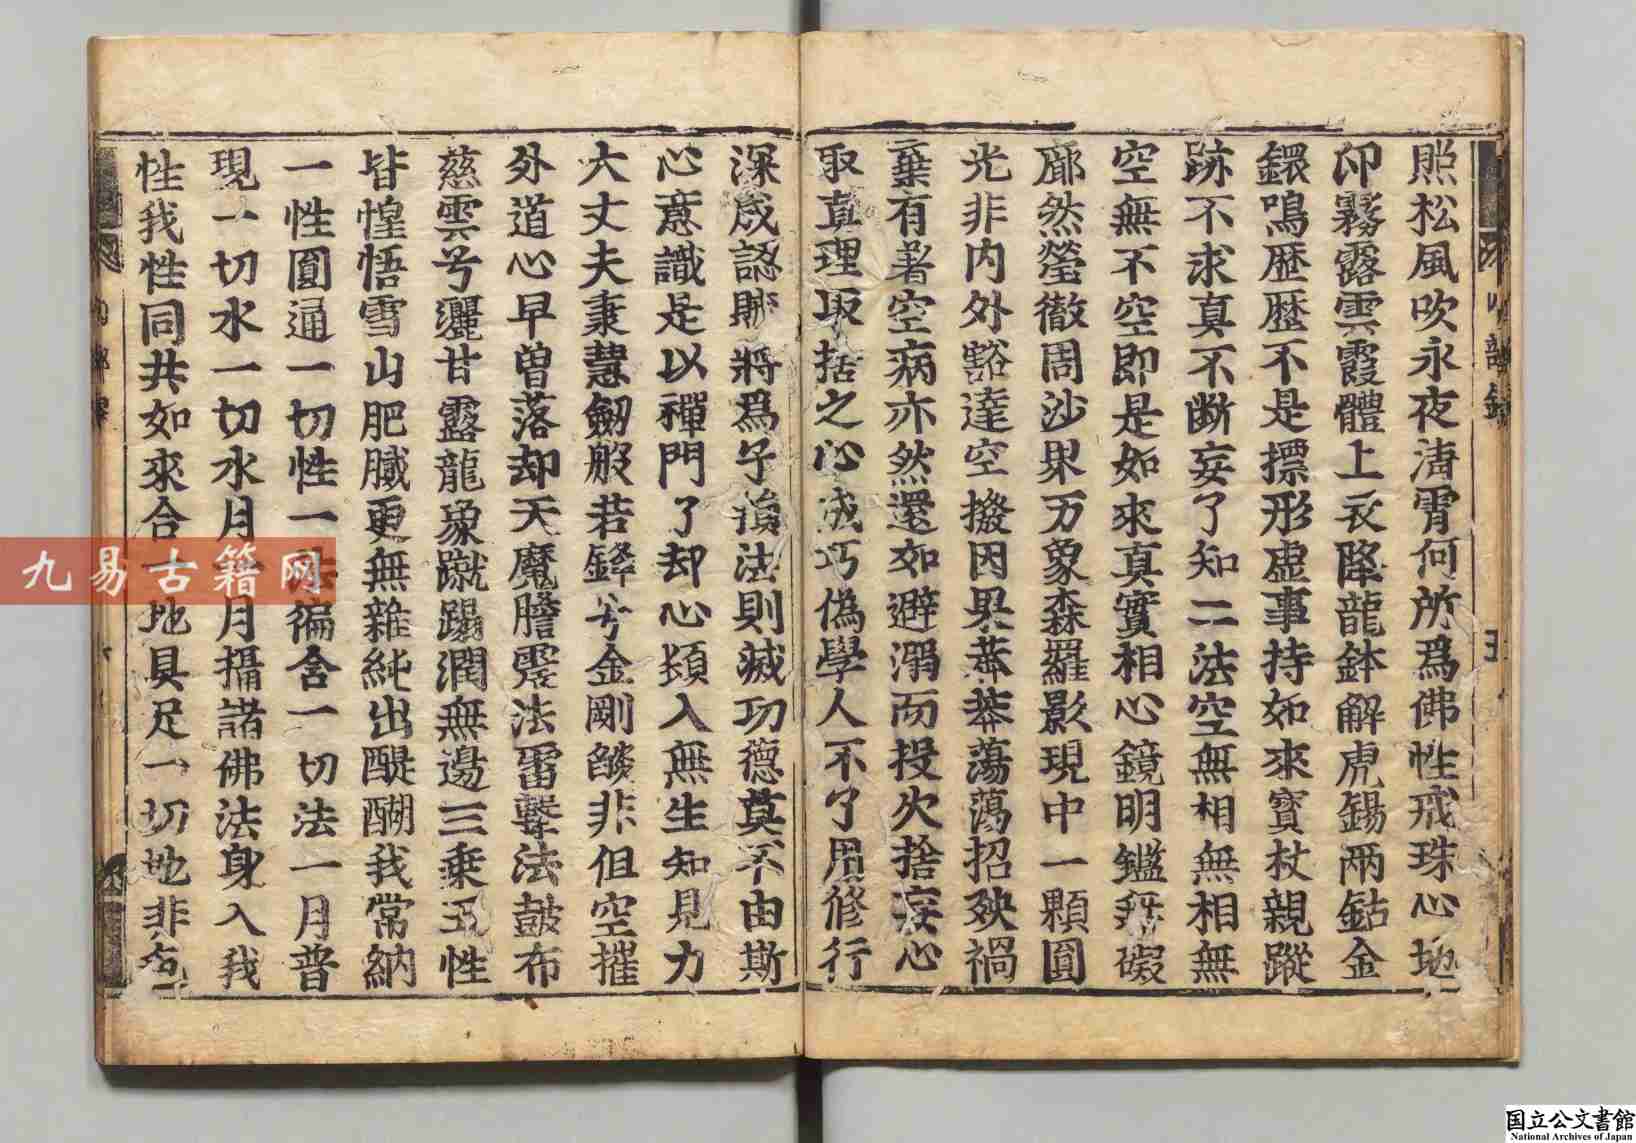 照松風吹永夜淸霄何所爲佛性戒珠心地
印霧露雲霞體上衣降龍鉢解虎錫兩鈷金
鐶鳴歷歷不是摽形虛事持如來寶杖親蹤
跡不求真不斷妄了知二法空無相無相無
空無不空即是如來真實相心鏡明鑑無礙
廓然瑩徹周沙界万象森羅影現中一顆圓
光非內外豁達空撥因果莽莽蕩蕩招殃禍
棄有著空病亦然還如避溺而投火捨妄心
取真理取捨之心成巧偽學人不了用修行
深成認賊將爲子損法財滅功德莫不由斯
心意識是以禪門了却心頓入無生知見力
大丈夫秉慧劒般若鋒兮金剛燄非但空摧
外道心早曾落却天魔膽震法雷擊法鼓布
慈雲兮灑甘露龍象蹴蹋潤無邊三乗五性
皆惺悟雪山肥膩更無雜純出醍醐我常納
一性圓通一切性一法徧含一切法一月普
現一切水一切水月一月攝諸佛法身入我
性我性同共如來合一地具足一切地非色
五
九易古籍网
国立公文書館
National Archives of Japan